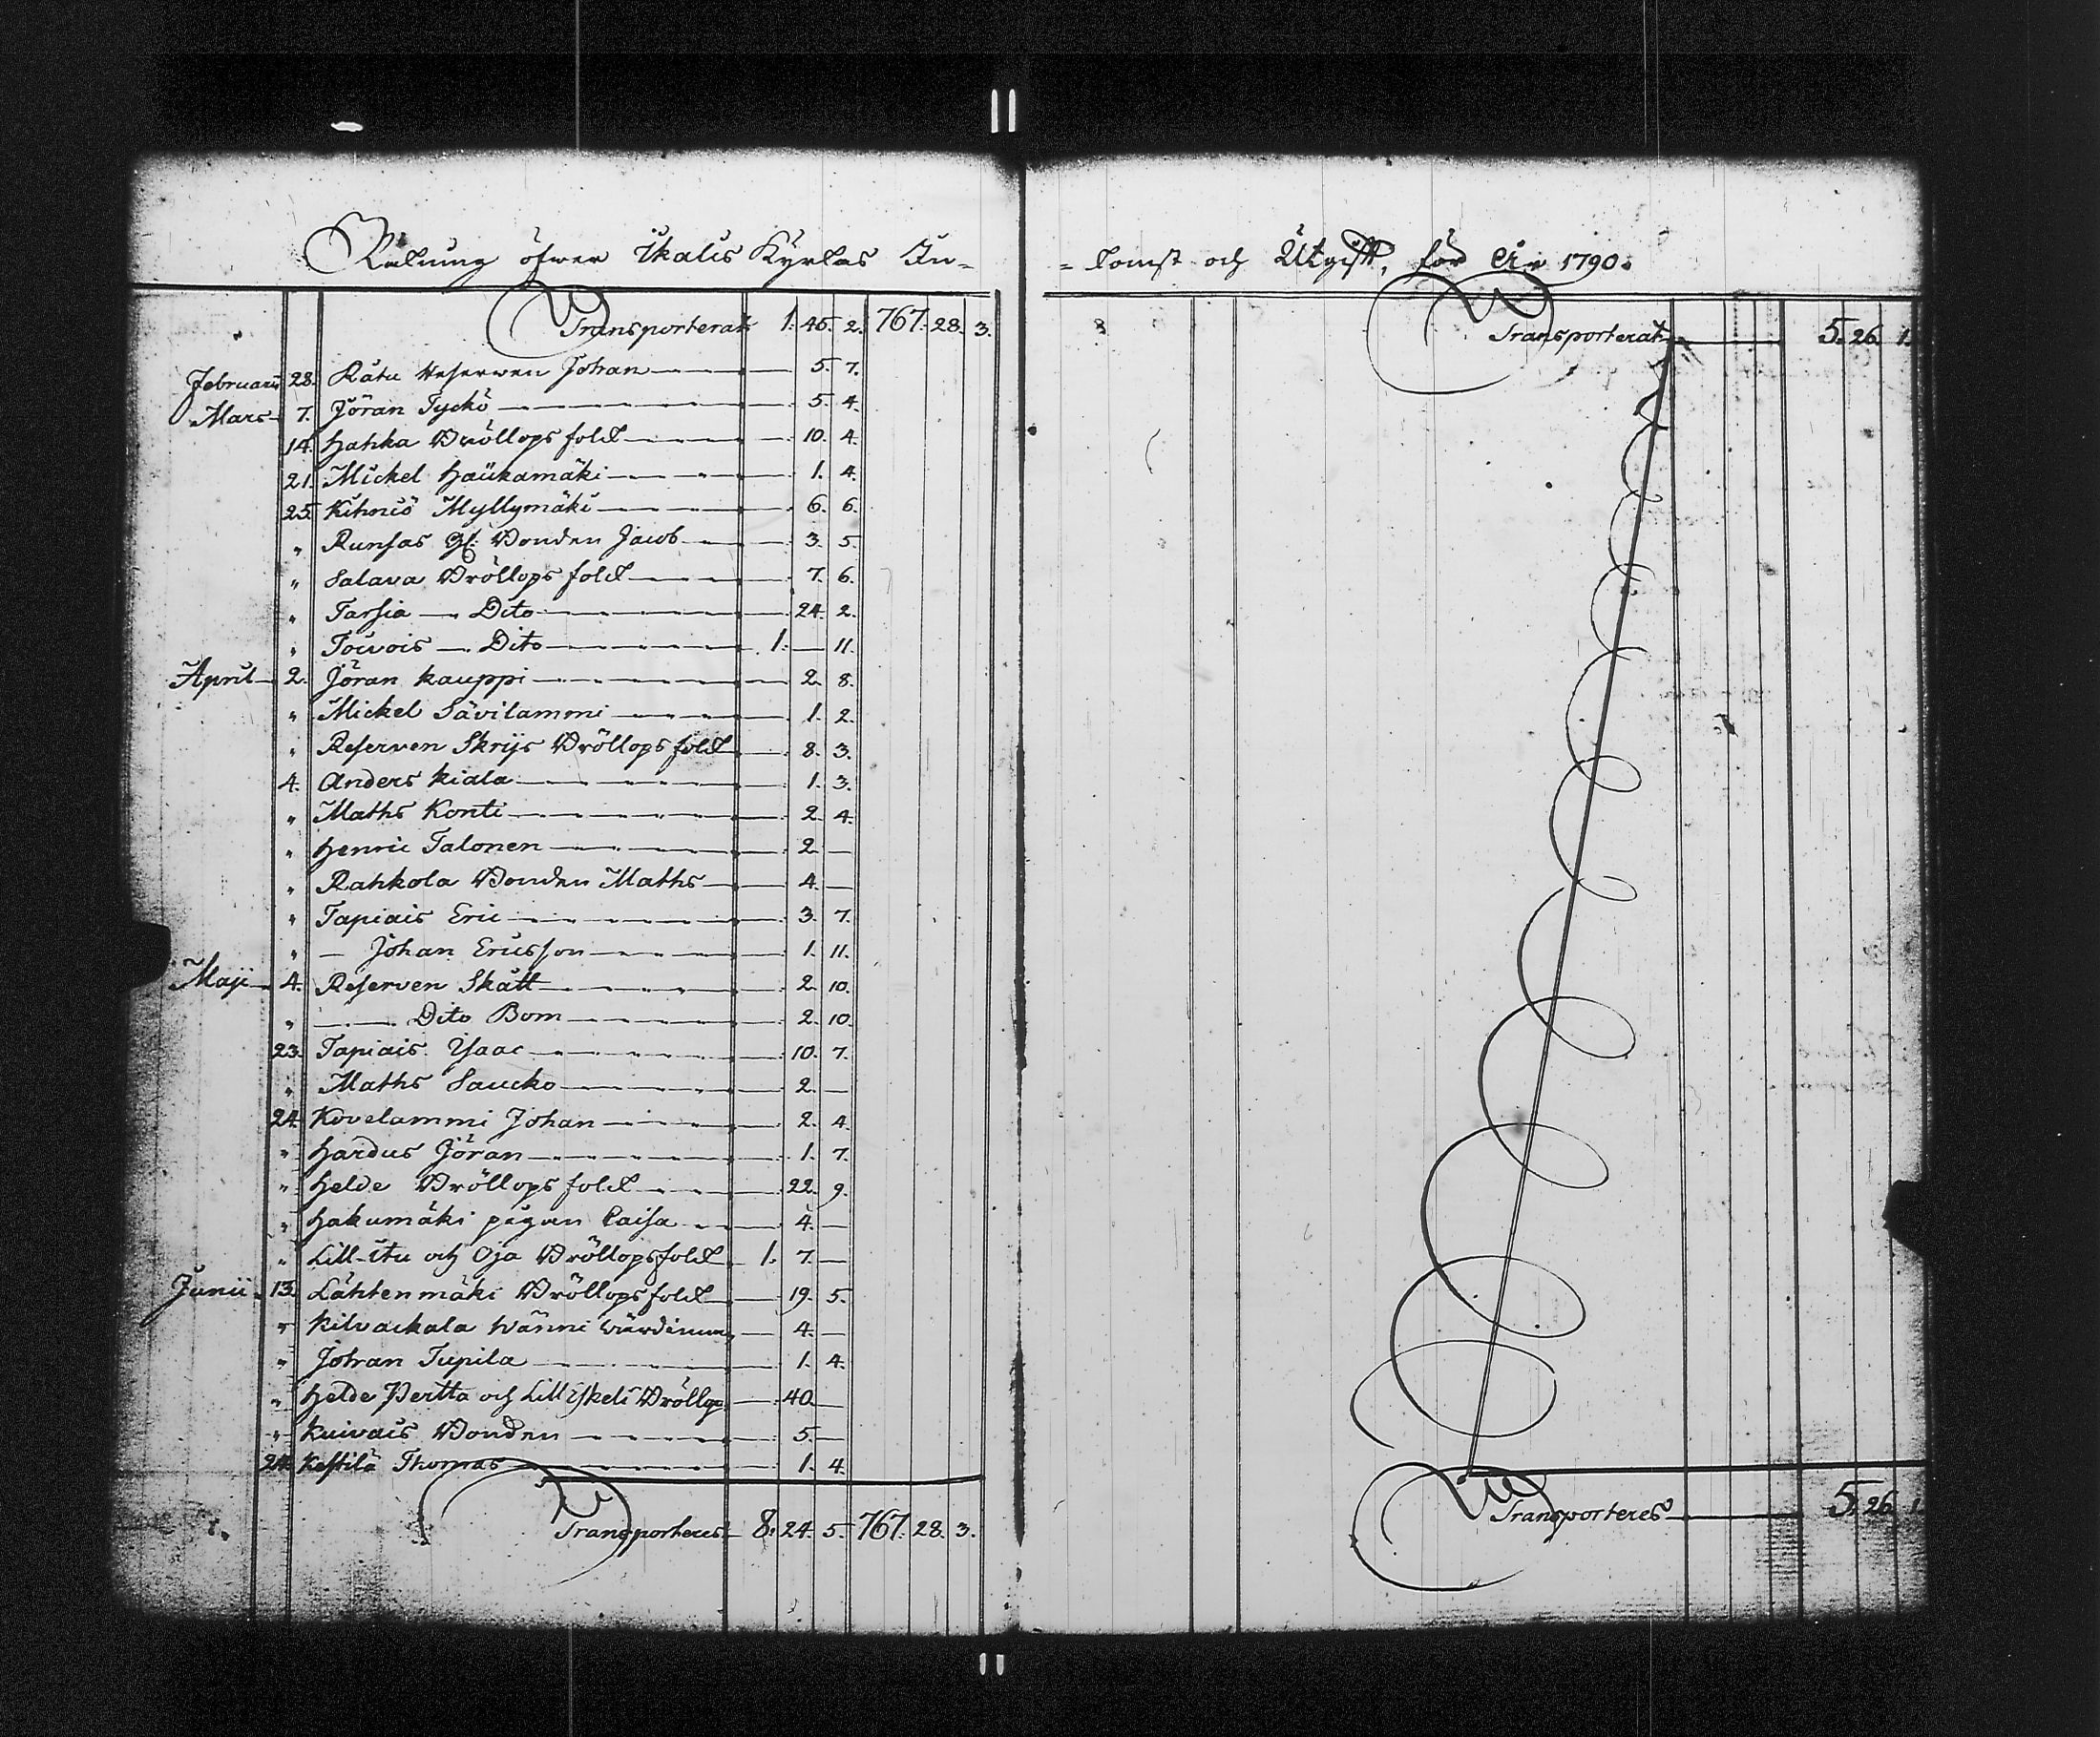 Räkning öfwer Ikalis Kyrkas In-
Transporterat 1. 45. 2. 767. 28. 3.
Februarii 28. Rätu Reserwen Johan 5. 7.
Mars 7. Jöran Tyckö 5. 4.
14. Hahka Bröllops folck 10. 4.
21. Mickel Haukamäki 1. 4.
25. Kihniö Myllymäki 6. 6.
" Runsas Gl. Bonden Jacob 3. 5.
" Salava Bröllops folck 7. 6.
" Tarsia — Dito 24. 2.
" Toivois — Dito 1. — 11.
April 2. Jöran Kauppi 2. 8.
" Mickel Sävilammi 1. 2.
" Reserven Skrijs Bröllops folck 8. 3.
4. Anders Kiala 1. 3.
" Maths Konti 2. 4.
" Henric Talonen 2. —
" Rahkola Bonden Maths 4. —
" Tapiais Eric 3. 7.
" — Johan Ericsson 1. 11.
Maji 4. Reserven Skatt 2. 10.
" — Dito Bom 2. 10.
23. Tapiais Isaac 10. 7.
" Maths Saucko 2. —
24. Kovelammi Johan 2. 4.
" Hardus Jöran 1. 7.
" Helde Bröllops folck 22. 9.
" Hakumäki pigan Caisa 4. —
" Lill-Itu och Oja Bröllopsfolck 1. 7. —
Junii 13. Lähtenmäki Bröllops folck 19. 5.
" Kilvackala Wänni 4. —
" Johan Tupila 1. 4.
" Helde Pertta och Lill Iskeli Bröllop 40. —
" Kuivais Bonden 5. —
24. Kestilä Thomas 1. 4.
Transporteres 8. 24. 5. 767. 28. 3.
= komst och Utgift, för År 1790.
Transporterat 5. 26. 1.
Transporteres 5. 26. 1